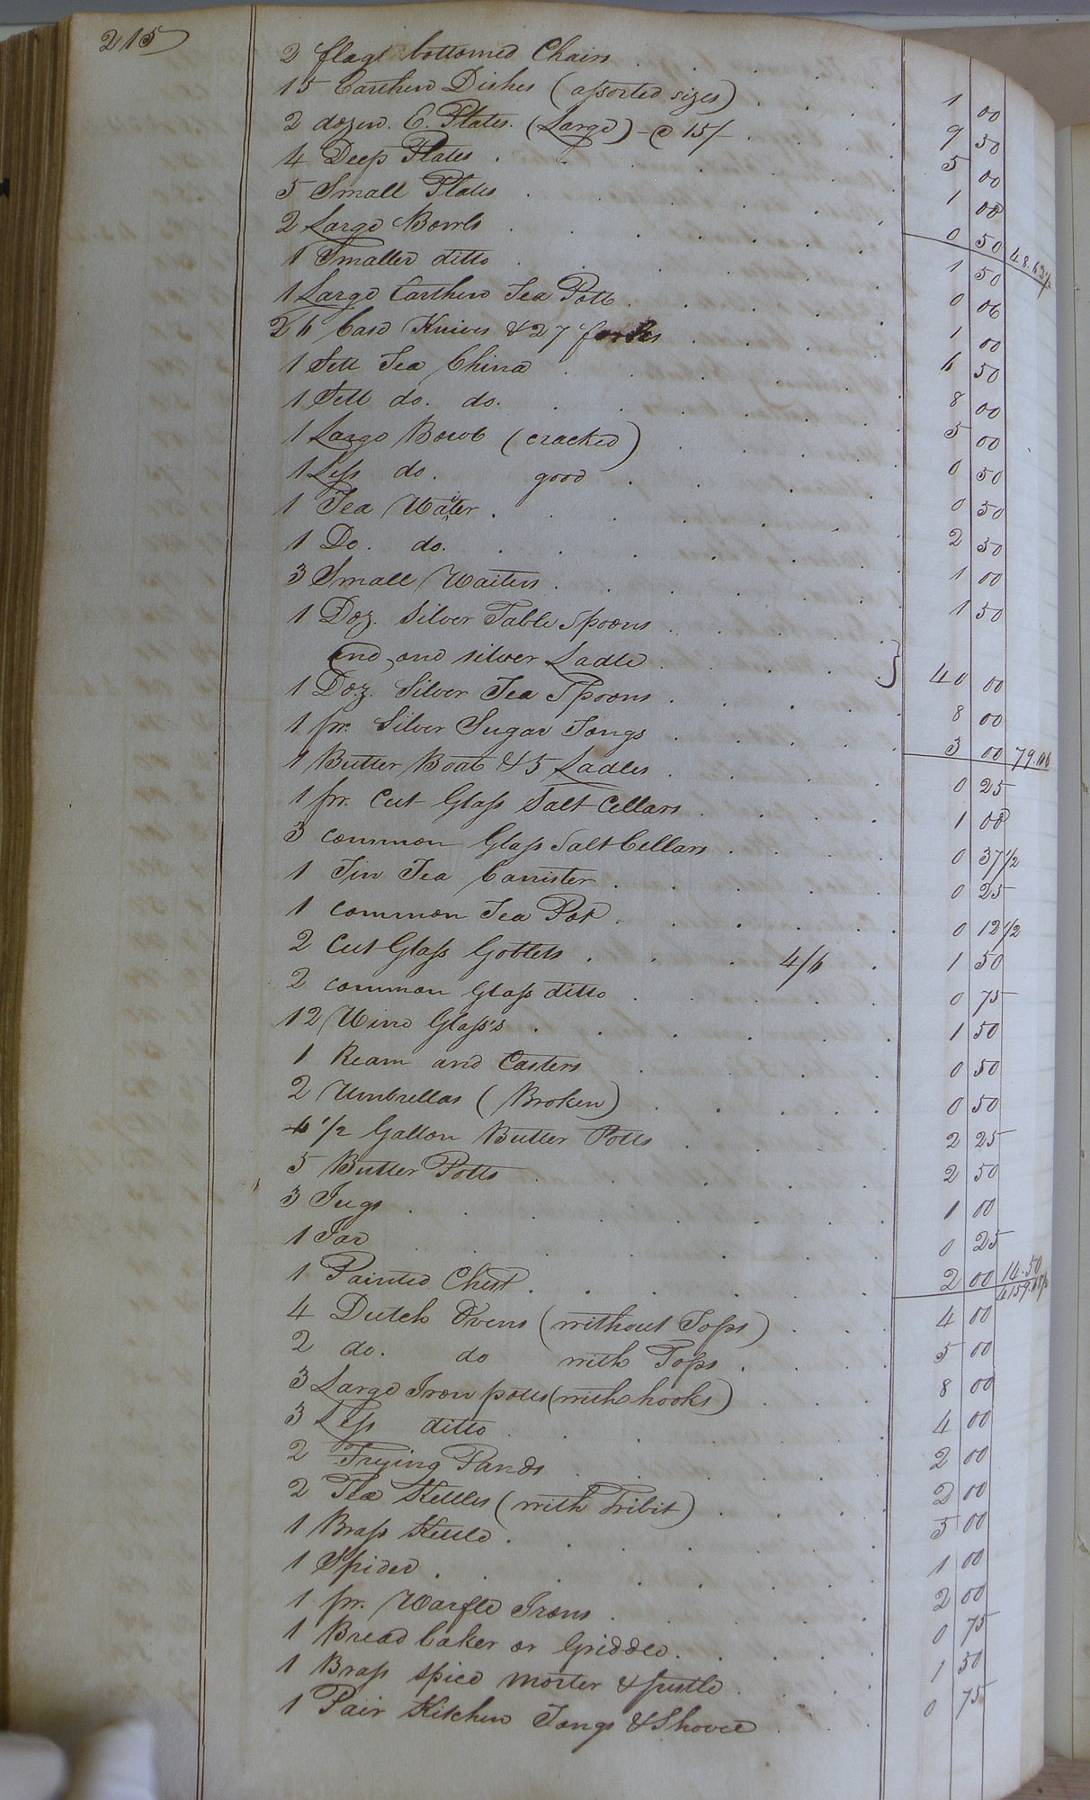 215
2 flagt bottomed Chairs 1 00
15 Earthen Dishes (assorted sizes) 9 50
2 dozen. E. Plates. (Large) - @ 15/ 5 00
4 Deep Plates 1 00
5 Small Plates 0 50 48.62½
2 Large Bowls 1 50
1 Smaller ditto 0 06
1 Large Earthen Tea Pott 1 00
26 Case Knives & 27 forks 6 50
1 Sett Tea China 8 00
1 Sett do. do. 5 00
1 Large Bowl (cracked) 0 50
1 Less do. good 0 50
1 Tea Waiter 2 50
1 Do. do. 1 00
3 Small Waiters 1 50
1 Doz. Silver Table Spoons
and one silver Ladle } 40 00
1 Doz. Silver Tea Spoons 8 00
1 pr. Silver Sugar Tongs 3 00 79.06
1 Butter Boat & 5 Ladles 0 25
1 pr. Cut Glass Salt Cellars 1 00
3 common Glass Salt Cellars 0 37 1/2
1 Tin Tea Canister 0 25
1 common Tea Pot 0 12 1/2
2 Cut Glass Goblets 4/6 1 50
2 common Glass ditto 0 75
12 Wine Glass's 1 50
1 Ream and Casters 0 50
2 Umbrellas (Broken) 0 50
4 1/2 Gallon Butter Potts 2 25
5 Butter Potts 2 50
3 Jugs 1 00
1 Jar 0 25
1 Painted Chest 2 00 14.50
4 Dutch Ovens (without Tops) 4 00
2 do. do with Tops 5 00
3 Large Iron potts (with hooks) 8 00
3 Less ditto 4 00
2 Frying Pands 2 00
2 Tea Kettles (with Tribit) 2 00
1 Brass Kettle 5 00
1 Spider 1 00
1 pr. Warfle Irons 2 00
1 Bread baker or Griddle 0 75
1 Brass spice morter & pustle 1 50
1 Pair Kitchen Tongs & Shovel 0 75